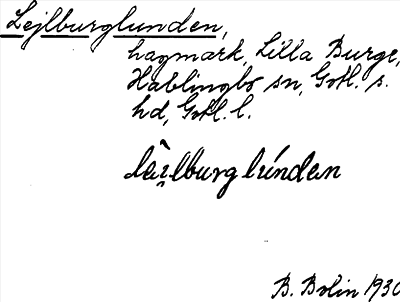 Lejlburglunden,
hagmark, Lilla Burge,
Hablingbo sn, Gotl. s.
hd, Gotl. l.
lburglúnden
B. Bolin 1930